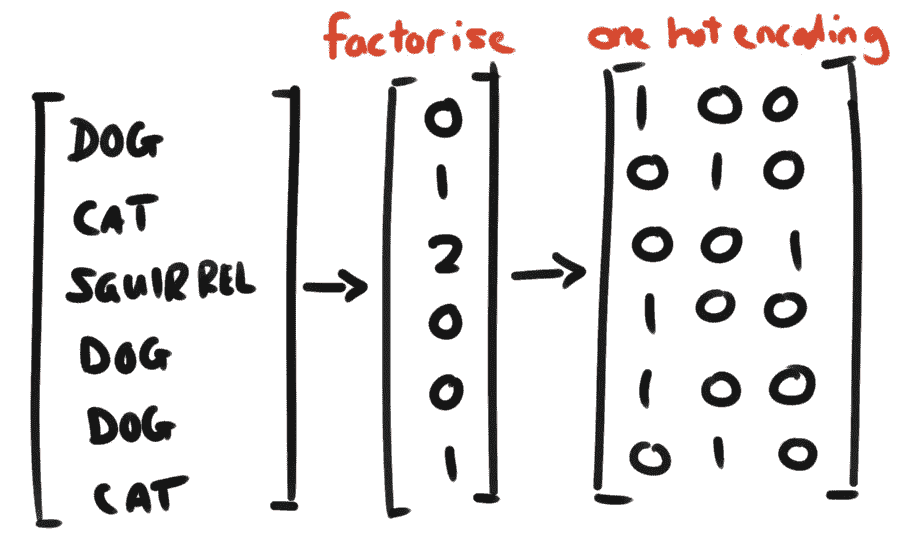 factorise
one hot encoding
DOG
CAT
SQUIRREL
DOG
DOG
CAT
0
1
2
0
0
1
1 0 0
0 1 0
0 0 1
1 0 0
1 0 0
0 1 0